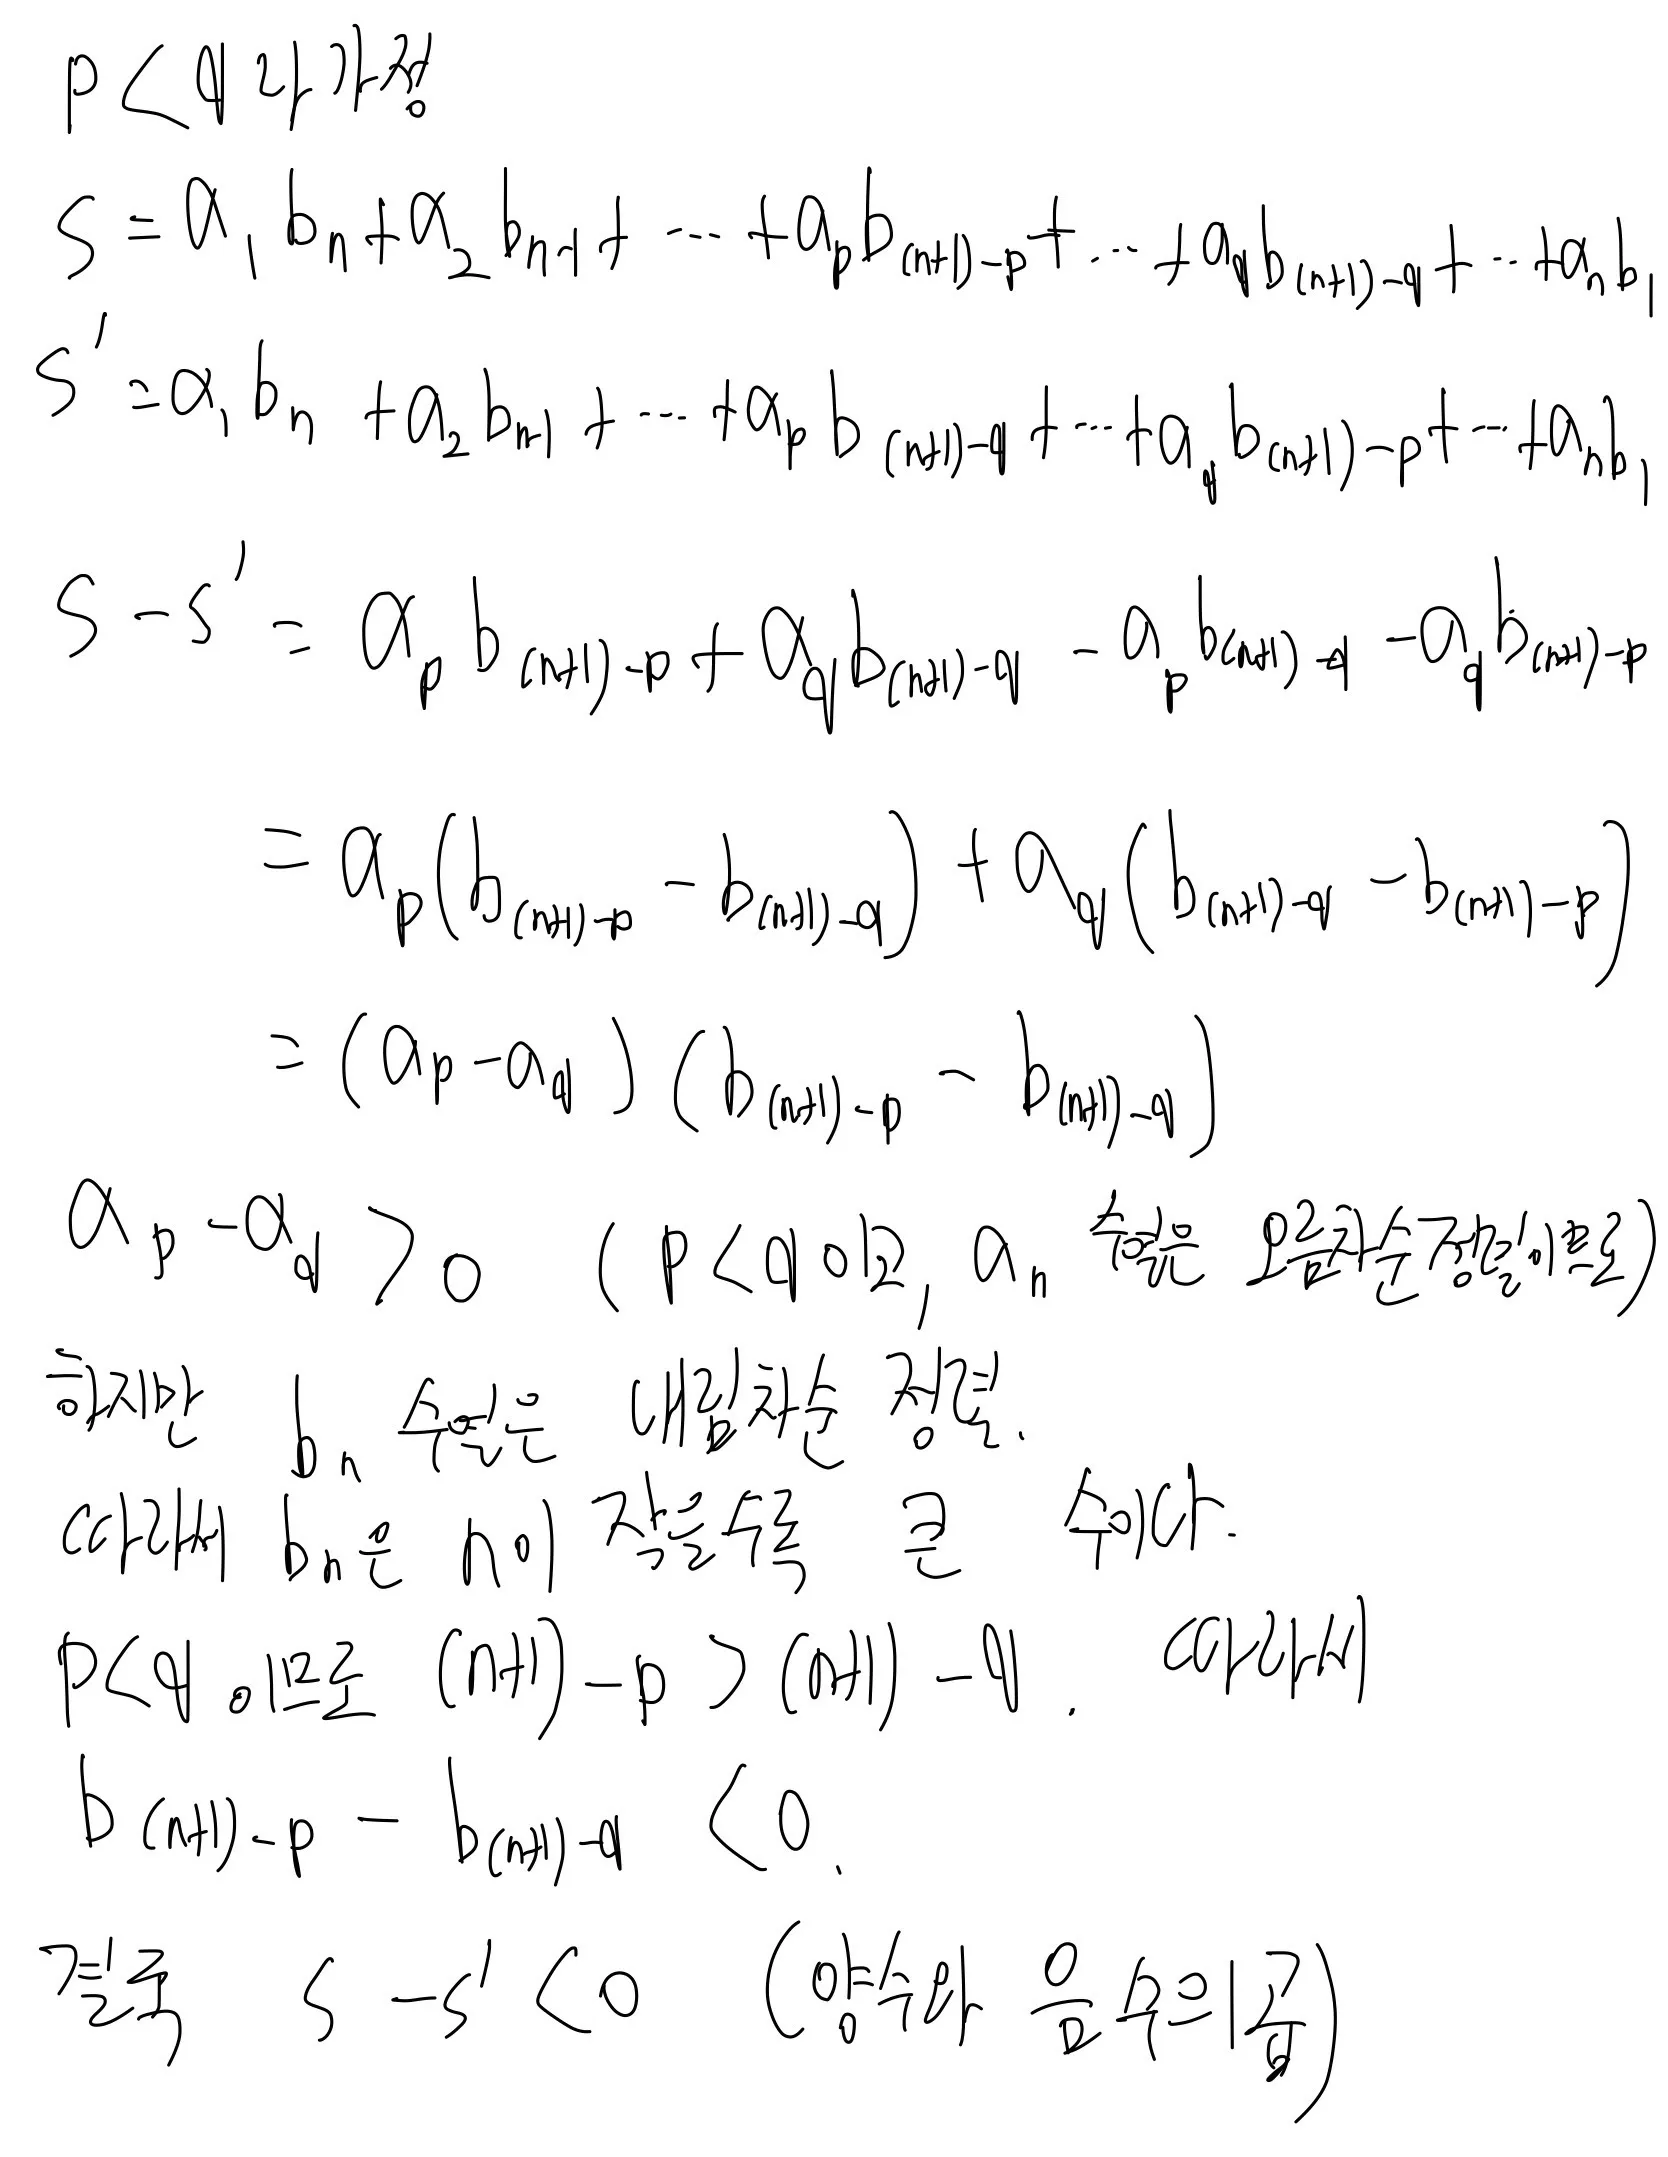 p < q 라 가정
S = a₁bₙ + a₂bₙ₋₁ + ... + a_p b_(n+1)-p + ... + a_q b_(n+1)-q + ... + aₙb₁
S' = a₁bₙ + a₂bₙ₋₁ + ... + a_p b_(n+1)-q + ... + a_q b_(n+1)-p + ... + aₙb₁
S - S' = a_p b_(n+1)-p + a_q b_(n+1)-q - a_p b_(n+1)-q - a_q b_(n+1)-p
= a_p (b_(n+1)-p - b_(n+1)-q) + a_q (b_(n+1)-q - b_(n+1)-p)
= (a_p - a_q) (b_(n+1)-p - b_(n+1)-q)
a_p - a_q > 0 (p < q 이고, aₙ 수열은 오름차순정렬이므로)
하지만 bₙ 수열은 내림차순 정렬.
따라서 bₙ은 n이 작을수록 큰 수이다.
p < q 이므로 (n+1)-p > (n+1)-q. 따라서
b_(n+1)-p - b_(n+1)-q < 0.
결국 S - S' < 0 (양수와 음수의 곱)